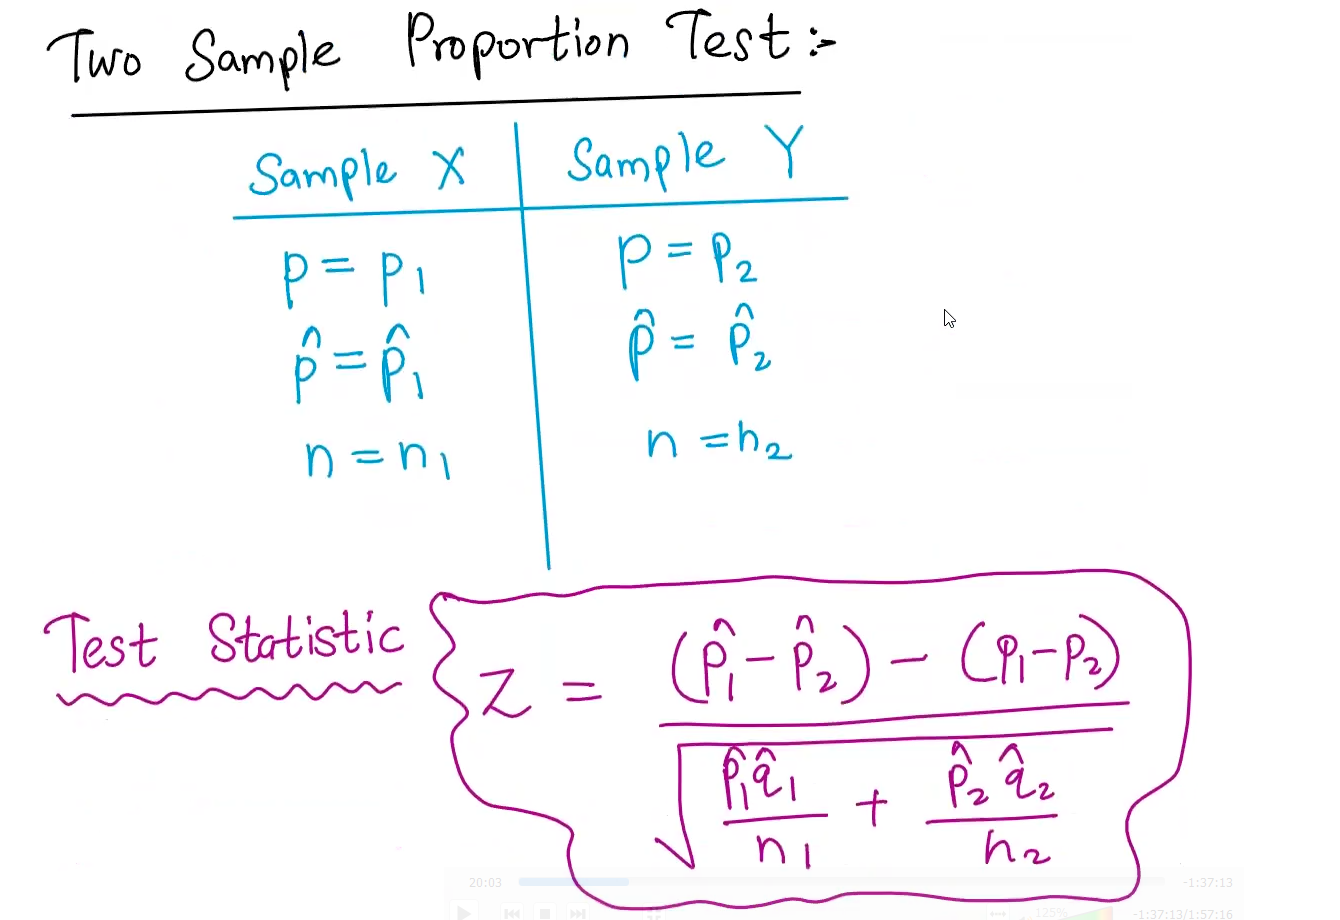 Two Sample Proportion Test :-
Sample X Sample Y
p = p₁ p = p₂
p̂ = p̂₁ p̂ = p̂₂
n = n₁ n = n₂
Test Statistic
z = (p̂₁ - p̂₂) - (p₁ - p₂)
√ p̂₁q̂₁ / n₁ + p̂₂q̂₂ / n₂
20:03 -1:37:13
125% -1:37:13/1:57:16